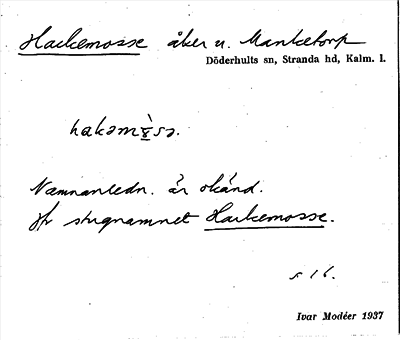 Hackemosse åker u. Manketorp
Döderhults sn, Stranda hd, Kalm. l.
Namnanledn. är okänd.
Jfr stugnamnet Hackemosse.
s 16.
Ivar Modéer 1937